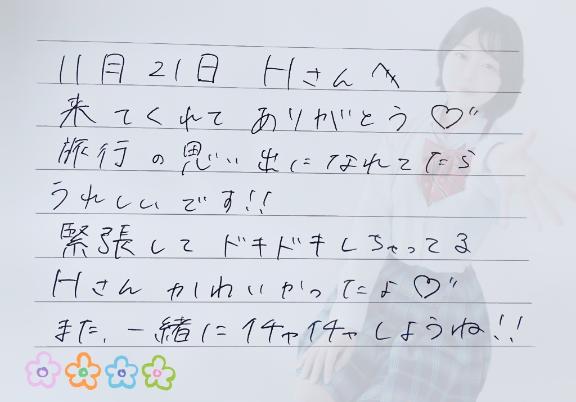 11月21日 Hさんへ
来てくれてありがとう♡"
旅行の思い出になれてたら
うれしいです!!
緊張してドキドキしちゃってる
Hさんかわいかったよ♡"
また、一緒にイチャイチャしようね!!